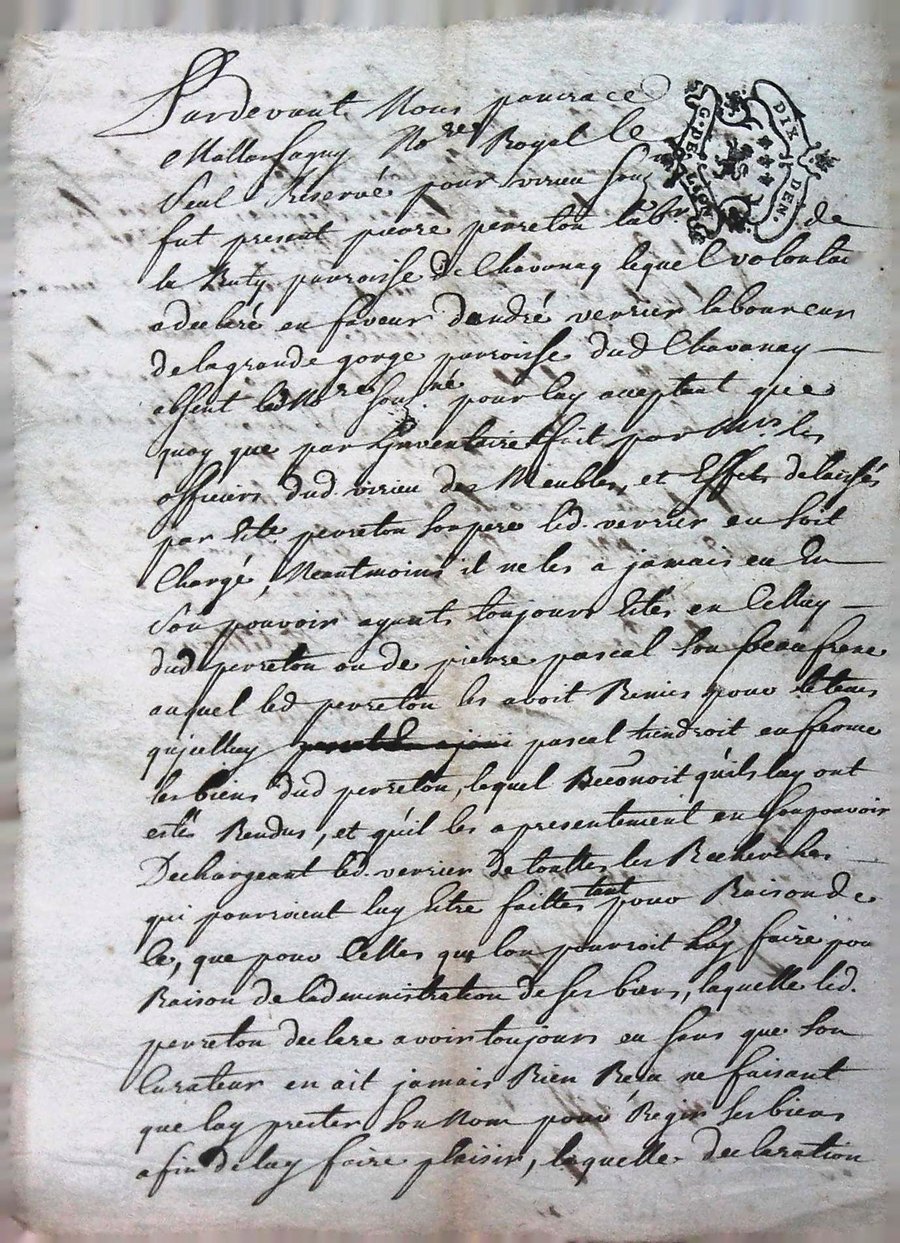 Pardevant Nous pancrace
Mallassagny No.re Royal le
seul Réservé pour virieu souz.
fut present pierre perreton lab.r de
la Ruty parroisse de Chavanay lequel volontai
a declaré en faveur dandré verrier laboureur
de la grande gorge parroisse dud Chavanay
absent led No.re sous.né pour luy aceptant que
quoy que par Linventaire fait par M.rs les
officiers dud. virieu des Meubles, et Effets delaissés
par Ettie perreton son pere led. verrier en soit
Chargé, Neantmoins il ne les a jamais eu En
son pouvoir ayants toujours Estés en Celluy
dud perreton ou de pierre pascal son beau frere
auquel led perreton les avoit Remis pour le tems
qu'icelluy pascal tiendroit en ferme
les biens dud perreton, lequel Reconoit qu'ils luy ont
estés Rendus, et qu'il les a presentement en son pouvoir
Dechargeant led. verrier de touttes les Recherches
qui pourroient luy Etre faittes tant pour Raison de
ce, que pour Celles que lon pourroit luy faire pour
Raison de ladministration de ses biens, laquelle led.
perreton declare avoir toujours eu sans que son
Curateur en ait jamais Rien Reçu ne faisant
que luy prester son Nom pour Regir ses biens
afin de luy faire plaisir, laquelle declaration
DIX DEN.
G. DE LYON